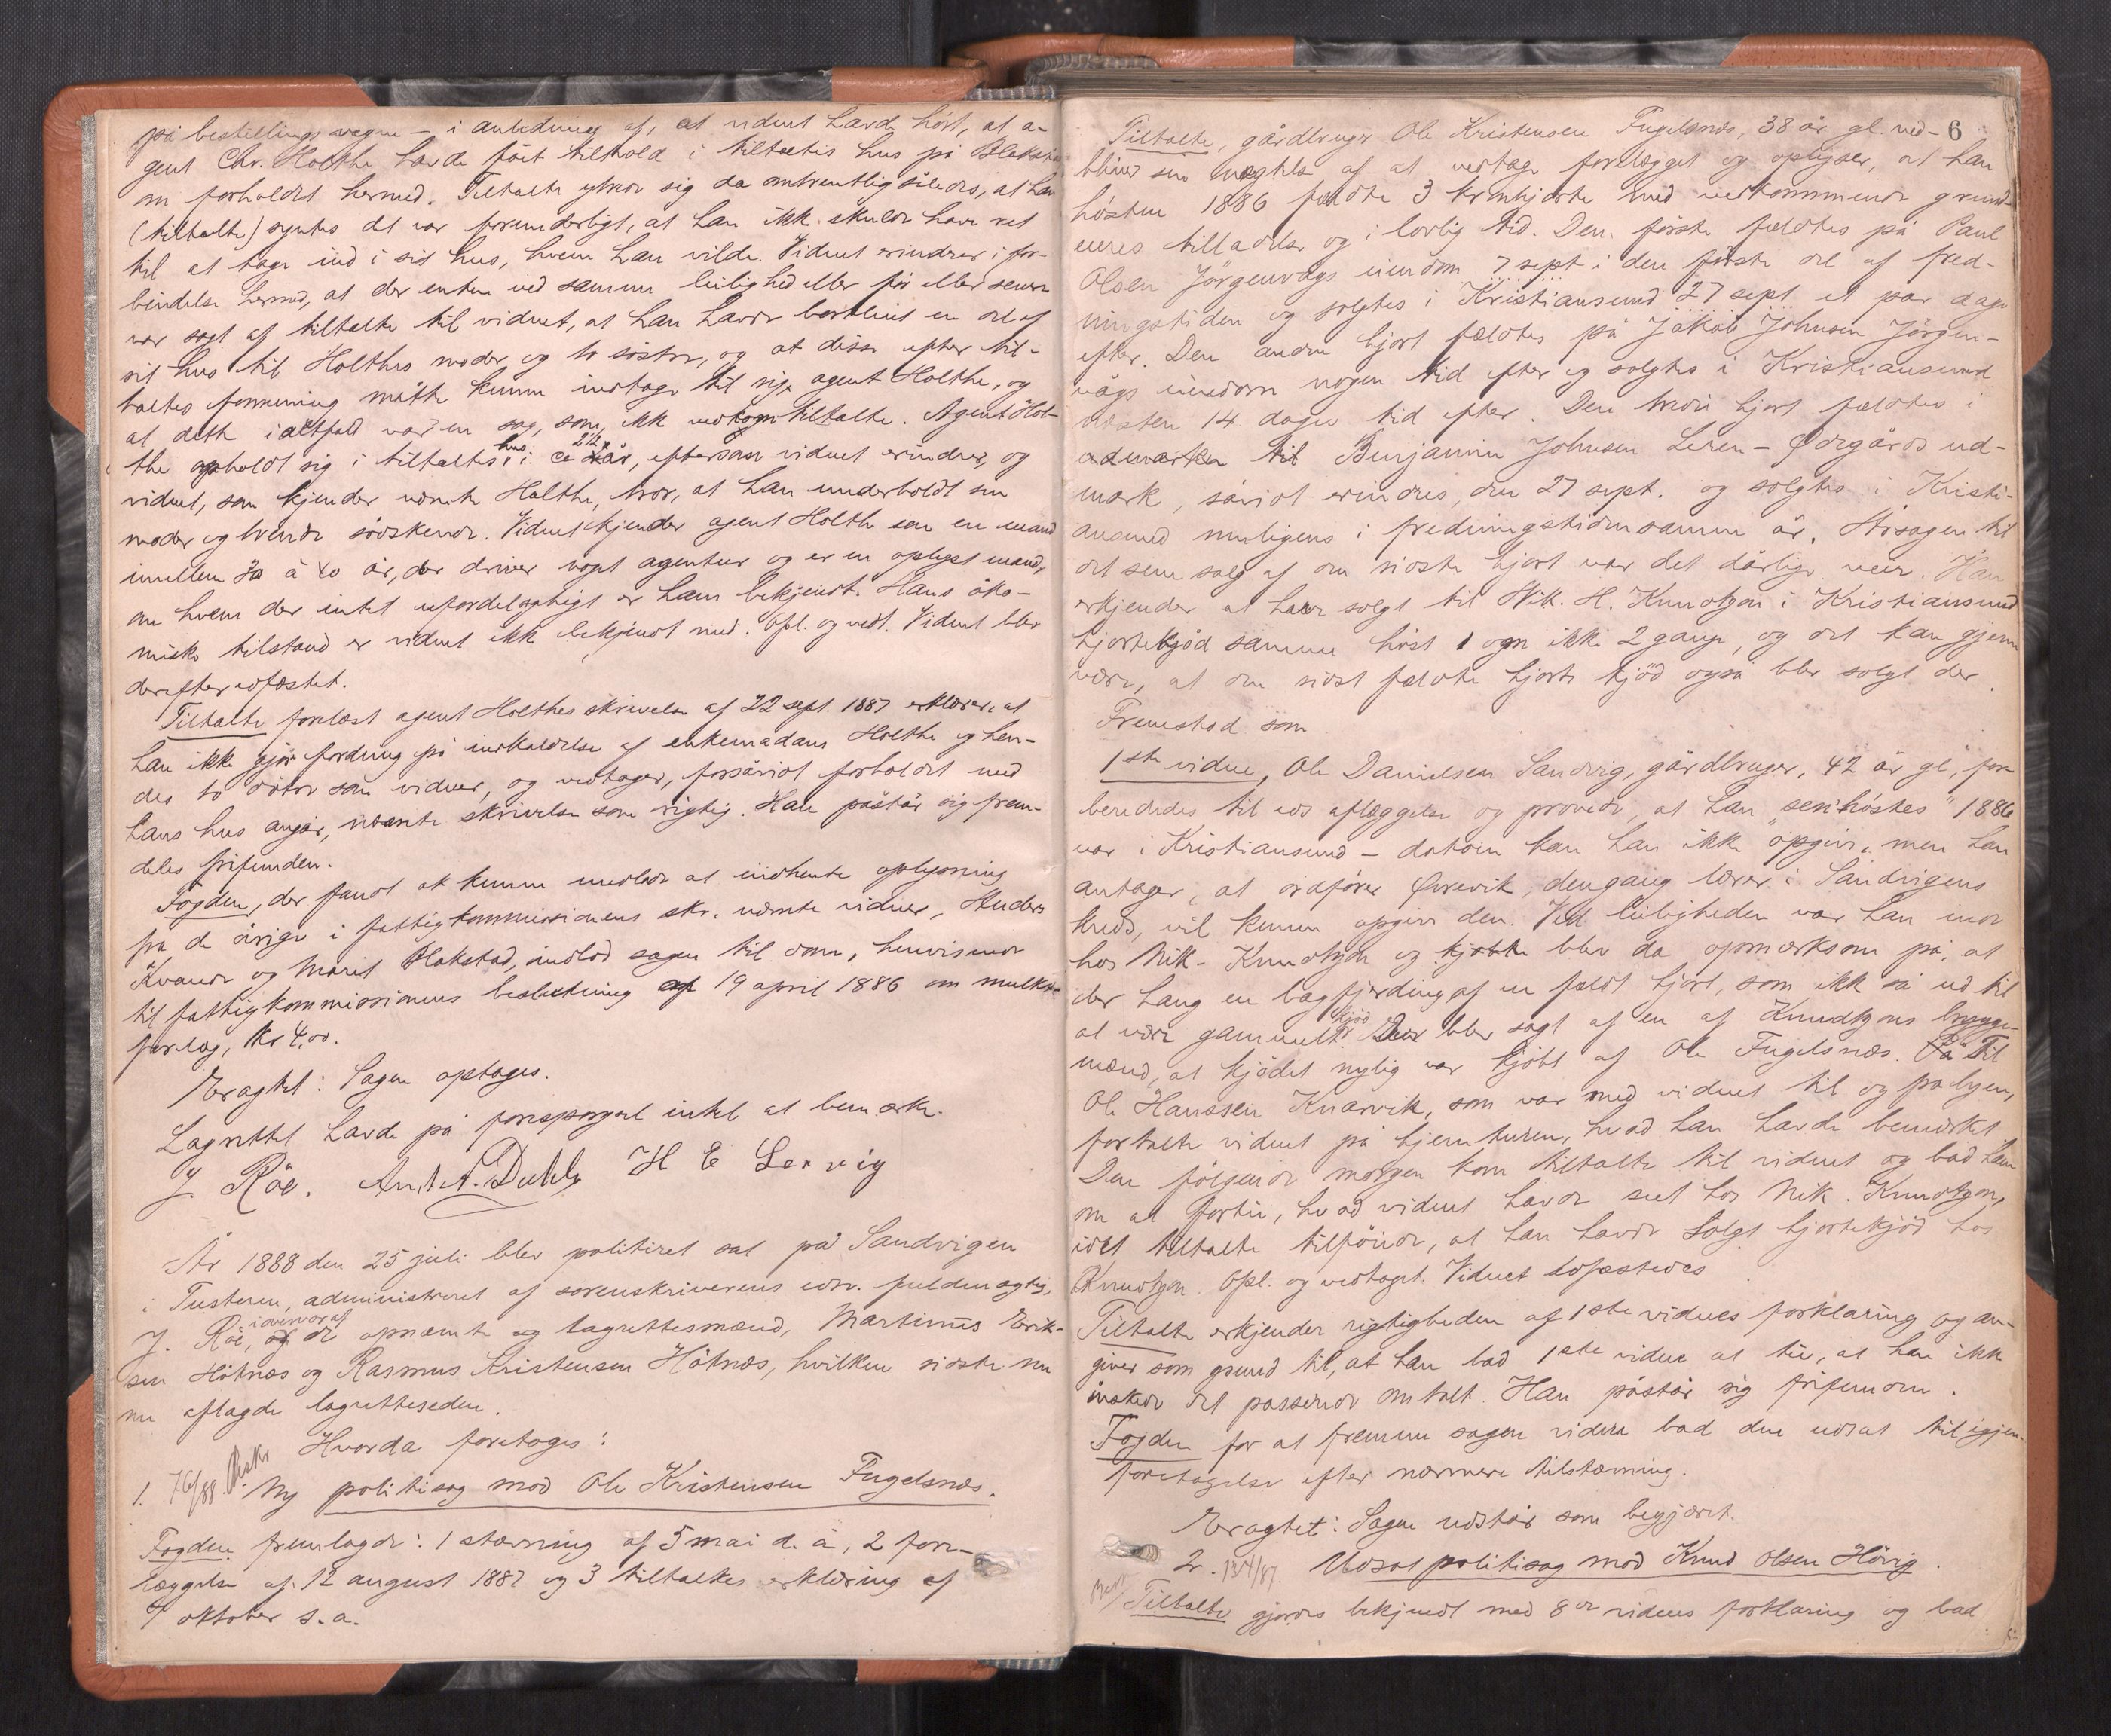 på bestillings vegne – i anledning af, at vidnet havde hört, at a-
gent Chr. Holthe havde fået tilhold i tiltaltes hus på Blakstad
om forholdet hermed. Tiltalte ytrede sig da omtrentlig således, at han
(tiltalte) syntes det var forunderligt, at han ikke skulde have ret
til at tage ind i sit hus, hvem han vilde. Vidnet erindrer i for-
bindelse hermed, at der enten ved samme leilighed eller för eller senere
var sagt af tiltalte til vidnet, at han havde bortleiet en del af
sit hus til Holthes moder og to söstre, og at disse efter til-
taltes formening måtte kunne indtage til sig agent Holthe, og
at dette ialtfald var en sag, som ikke vedkom tiltalte. Agent Hol-
the opholdt sig i tiltaltes hus i ca 2 1/2 år, eftersom vidnet erindrer, og
vidnet, som kjender nævnte Holthe, tror, at han underholdt sin
moder og tvende södskende. Vidnet kjender agent Holthe som en mand
imellem 30 à 40 år, der driver noget agentur og er en oplyst mand,
om hvem der intet ufordelagtigt er ham bekjendt. Hans öko-
nomiske tilstand er vidnet ikke bekjendt med. Opl. og vedt. Vidnet blev
derefter edfæstet.
Tiltalte forelæst agent Holthes skrivelse af 22 sept. 1887 erklærer, at
han ikke gjör fordring på indkaldelse af enkemadam Holthe og hen-
des to dötre som vidner, og vedtager, forsåvidt forholdet med
hans hus angår, nævnte skrivelse som rigtig. Han påstår sig frem-
deles frifunden.
Fogden, der fandt at kunne undlade at indhente oplysning
fra de övrige i fattigkommissionens skr. nævnte vidner, Anders
Kvande og Marit Blakstad, indlod sagen til dom, henvisende
til fattigkommissionens beslutning af 19 april 1886 om mulkt-
forelæg, kr 4,00.
Eragtet: Sagen optages.
Lagrettet havde på forespörgsel intet at bemærke.
J. Röe. And. A. Dahle H E Lervig
År 1888 den 25 juli blev politiret sat på Sandvigen
i Tusteren, administreret af sorenskriverens edsv. fuldmægtig,
J. Röe, i overvær af de opnævnte lagrettesmænd, Martinus Erik-
sen Hötnæs og Rasmus Kristensen Hötnæs, hvilken sidste nu
nu aflagde lagretteseden.
Hvorda foretages:
1. 76/88. Ny politisag mod Ole Kristensen Fugelsnæs.
Fogden fremlagde: 1 stævning af 5 mai d. å, 2 fore-
læggelse af 12 august 1887 og 3 tiltaltes erklæring af
7 oktober s. a.
6
Tiltalte, gårdbruger Ole Kristensen Fugelsnæs, 38 år gl. ved-
bliver sin vægtelse af at vedtage forelægget og oplyser, at han
hösten 1886 fældte 3 kronhjorte med vedkommende grund-
eieres tilladelse og i lovlig tid. Den förste fældtes på Paul
Olsen Jörgenvågs eiendom 7 sept i den förste del af fred-
ningstiden og solgtes i Kristiansund 27 sept et par dage
efter. Den anden hjort fældtes på Jakob Johnsen Jörgen-
vågs eiendom nogen tid efter og solgtes i Kristiansund
næsten 14 dages tid efter. Den tredie hjort fældtes i
udmarken til Benjamin Johnsen Leren-Ödegårds ud-
mark, såvidt erindres, den 27 sept. og solgtes i Kristi-
ansund muligens i fredningstiden samme år. Årsagen til
det sene salg af den sidste hjort var det dårlige veir. Han
erkjender at have solgt til Nik. H. Knudtzon i Kristiansund
hjortekjöd samme höst 1 om ikke 2 gange, og det kan gjerne
være, at den sidst fældte hjorts kjöd også blev solgt der.
Fremstod som
1ste vidne, Ole Danielsen Sandvig, gårdbruger, 42 år gl., for-
beredtes til eds aflæggelse og provede, at han "senhöstes" 1886
var i Kristiansund – datoen kan han ikke opgive, men han
antager, at ordförer Örevik, dengang lærer i Sandvigens
kreds, vil kunne opgive den. Ved leiligheden var han inde
hos Nik. Knudtzon og blev da opmærksom på, at
der hang en bagfjerding af en fældt hjort, som ikke så ud til
at være gammelt kjöd. Der blev sagt af en af Knudtzons brygge-
mænd, at kjödet nylig var kjöbt af Ole Fugelsnæs. Til
Ole Hanssen Knarvik, som var med vidnet til og på byen,
fortalte vidnet på hjemturen, hvad han havde bemærket.
Den fölgende morgen kom tiltalte til vidnet og bad ham
om at fortie, hvad vidnet havde seet hos Nik. Knudtzon,
idet tiltalte tilföiede, at han havde solgt hjortekjöd hos
Knudtzon. Opl. og vedtaget. Vidnet edfæstedes.
Tiltalte erkjender rigtigheden af 1ste vidnes forklaring og an-
giver som grund til, at han bad 1ste vidne at tie, at han ikke
önskede det passerede omtalt. Han påstår sig frifunden.
Fogden for at fremme sagen videre bad den udsat til igjen-
foretagelse efter nærmere tilstævning.
Eragtet: Sagen udstår som begjært.
2. 134/87. Udsat politisag mod Knud Olsen Hörig.
Tiltalte gjordes bekjendt med 8de vidnes forklaring og bad